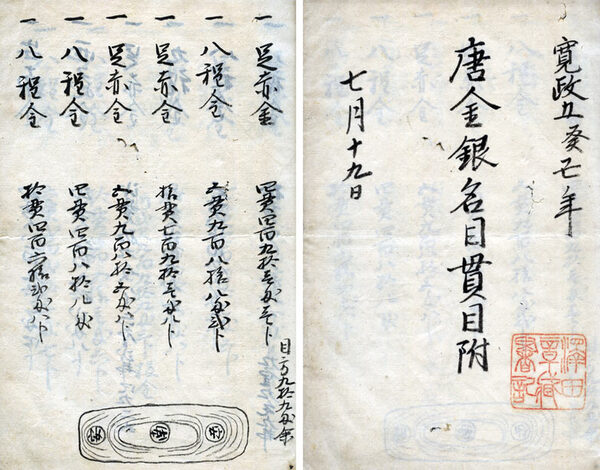 寛政五癸丑年
唐金銀名目貫目附
七月十九日
澤田
書記
一 足赤金 四貫四百九拾三匁三卜
一 八程金 貫九百八拾八匁弐卜
一 足赤金 拾貫七百九拾三匁八卜
一 足赤金 貫九百八拾匁八卜
一 八程金 四貫四百八拾九匁
一 八程金 拾貫四百六拾弐匁八卜
目方九拾九匁余